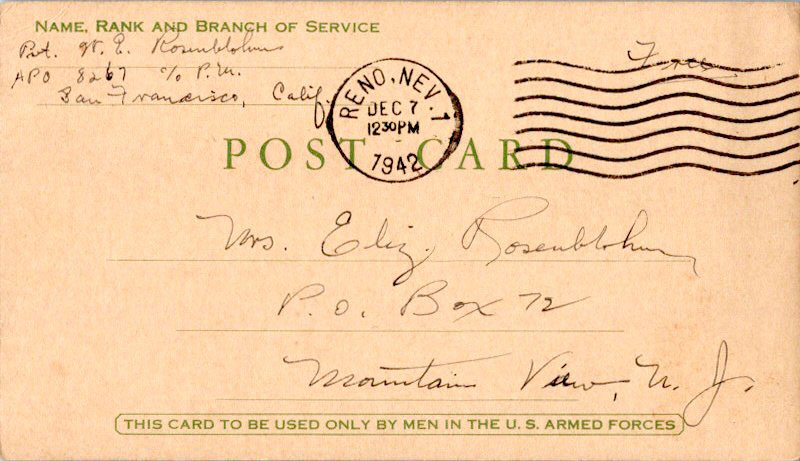 NAME, RANK AND BRANCH OF SERVICE
Pvt. W. E. Rosenblohm
APO 8267 c/o P.M.
San Francisco, Calif.
Free
RENO, NEV. 1
DEC 7
12 30 PM
1942
POST CARD
Mrs. Eliz. Rosenblohm
P.O. Box 72
Mountain View, N. J.
THIS CARD TO BE USED ONLY BY MEN IN THE U. S. ARMED FORCES